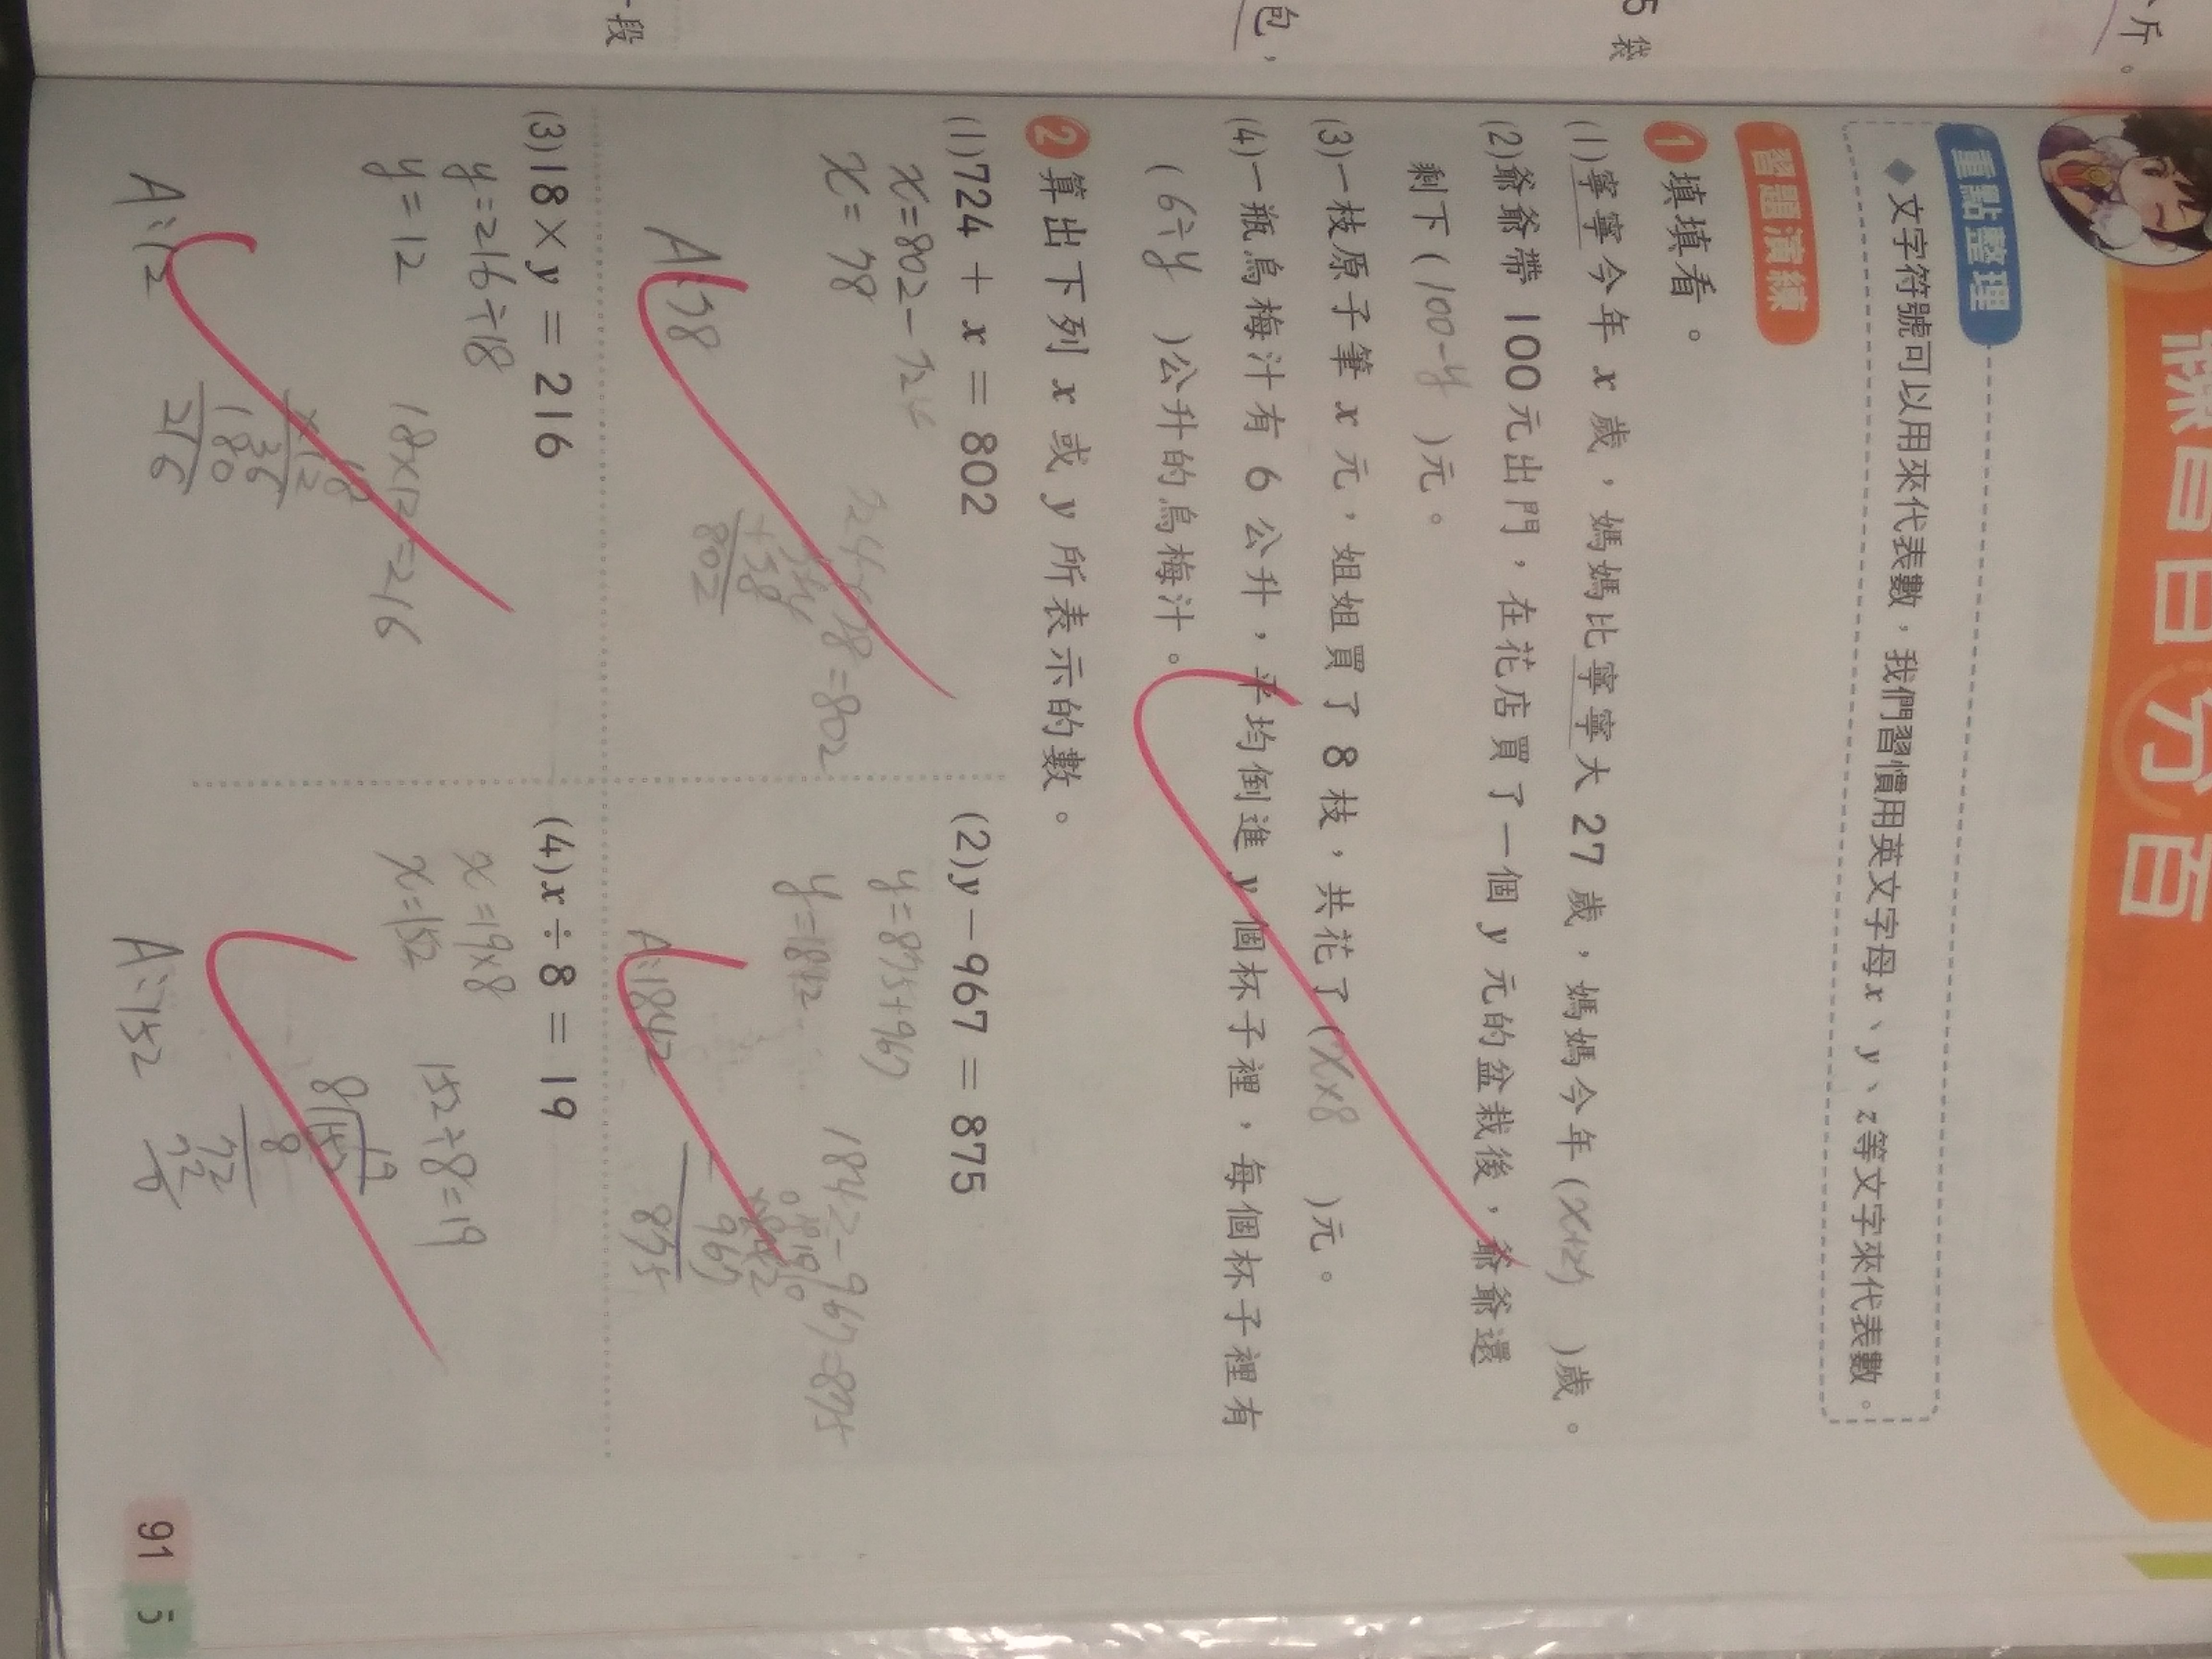 練習百分百
斤。
重點整理
◆文字符號可以用來代表數，我們習慣用英文字母x、y、z等文字來代表數。
習題演練
1 填填看。
5 袋
(1)寧寧今年 x 歲，媽媽比寧寧大 27 歲，媽媽今年(x+27)歲。
(2)爺爺帶 100元出門，在花店買了一個 y 元的盆栽後，爺爺還
剩下(100-y)元。
(3)一枝原子筆 x 元，姐姐買了 8 枝，共花了(x×8)元。
包，
(4)一瓶烏梅汁有 6 公升，平均倒進 y 個杯子裡，每個杯子裡有
(6÷y)公升的烏梅汁。
2 算出下列 x 或 y 所表示的數。
(1)724 + x = 802
x=802-724
x=78
724+78=802
724
+78
802
A:78
(2)y-967 = 875
y=875+967
y=1842
1842-967=875
1842
- 967
875
A:1842
段
(3)18×y = 216
y=216÷18
y=12
18×12=216
18
×12
36
180
216
A:12
(4)x÷8 = 19
x=19×8
x=152
152÷8=19
19
8 152
8
72
72
0
A:152
91